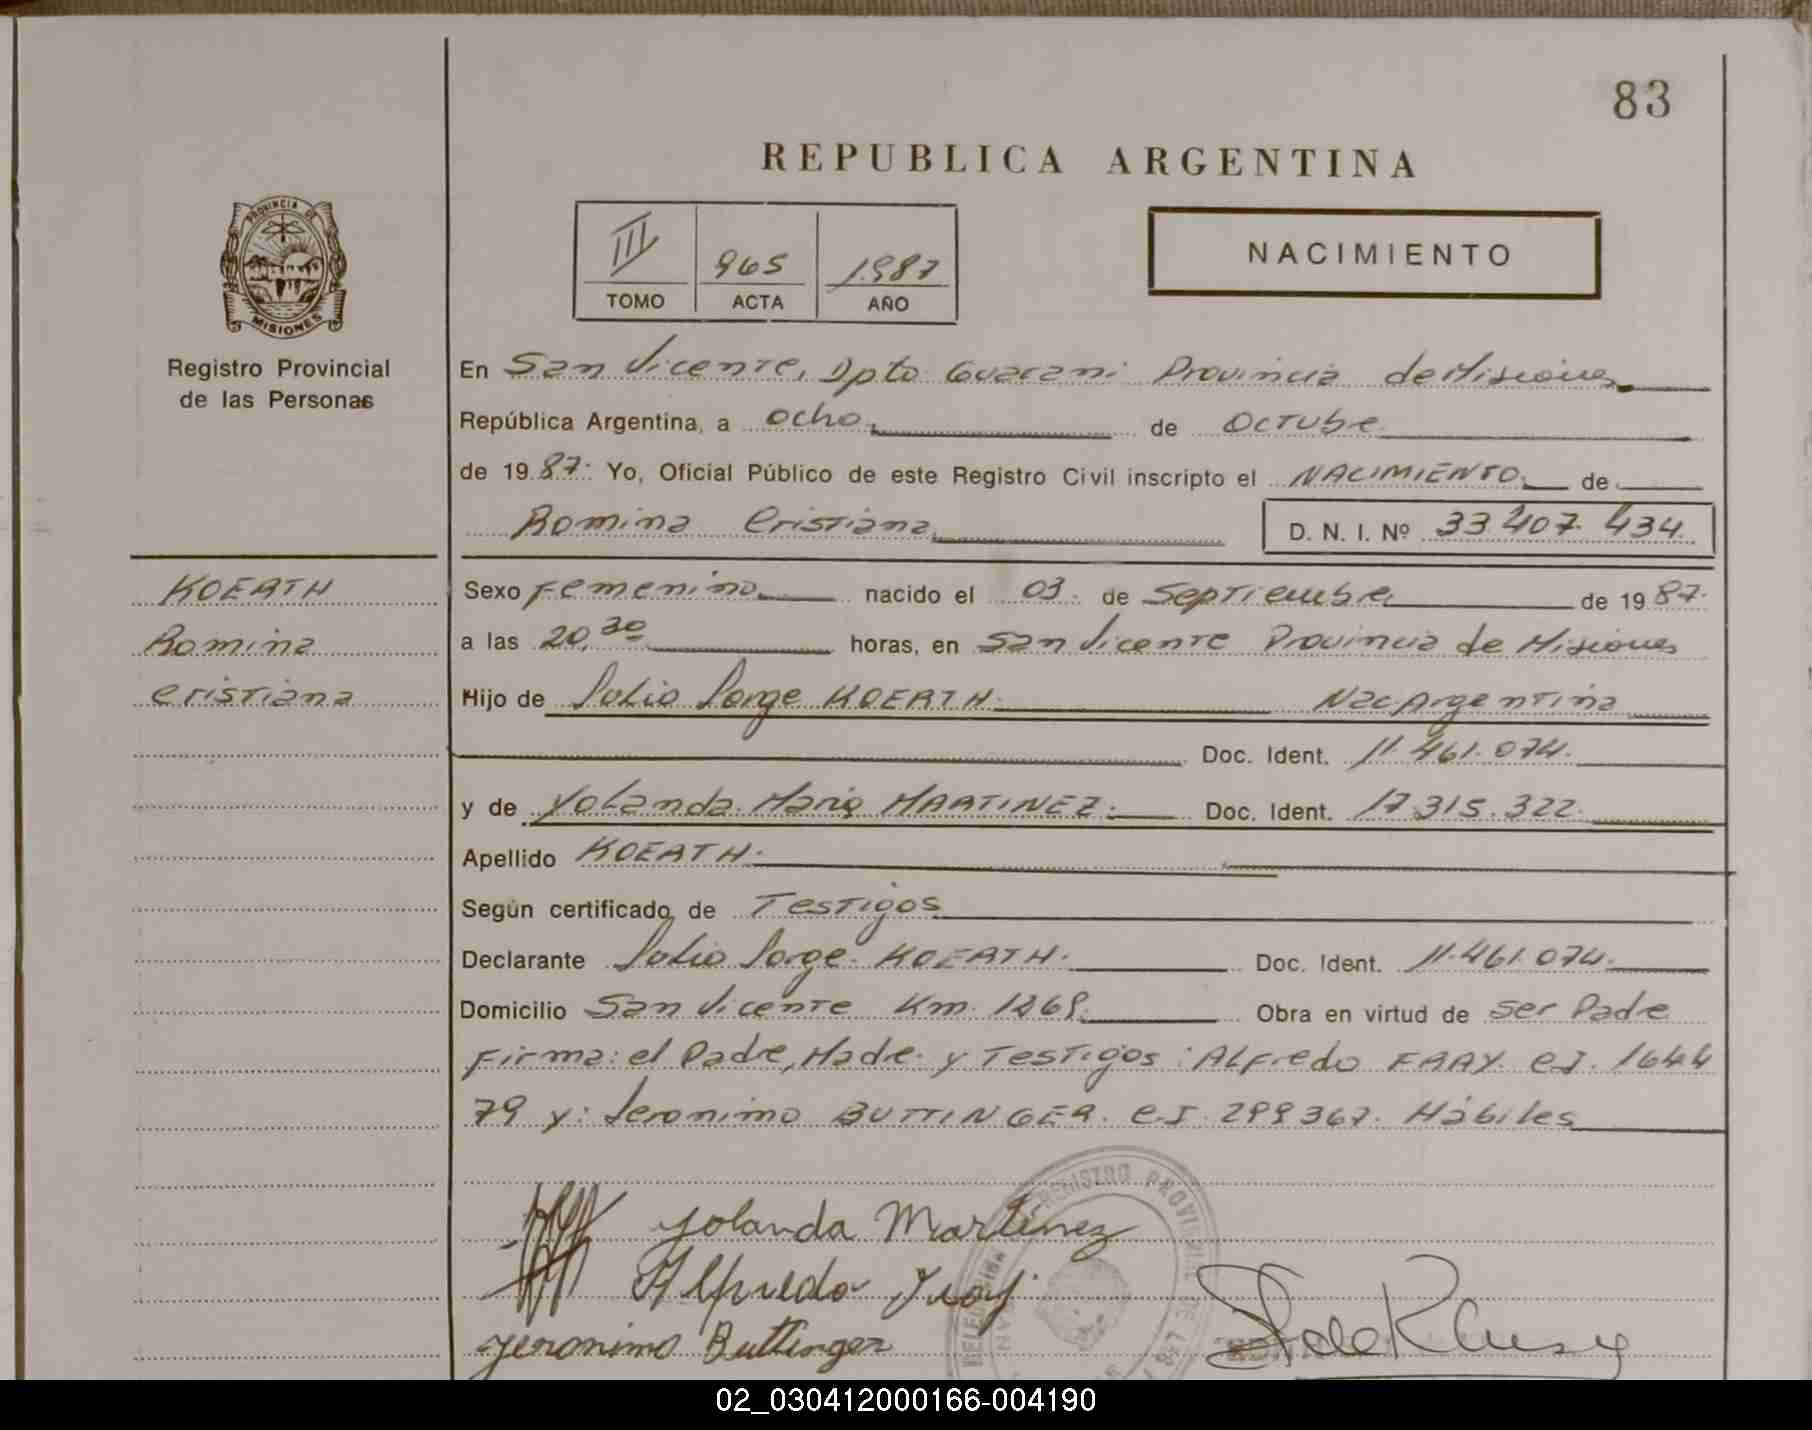 83
REPUBLICA ARGENTINA
PROVINCIA DE
MISIONES
Registro Provincial
de las Personas
III 965 1987
TOMO ACTA AÑO
NACIMIENTO
En San Vicente, Dpto Guarani Provincia de Misiones
República Argentina, a ocho de Octubre
de 1987. Yo, Oficial Público de este Registro Civil inscripto el NACIMIENTO de
Romina Cristiana D. N. I. Nº 33.407.434.
KOERTH
Romina
Cristiana
Sexo Femenino nacido el 03. de Septiembre de 1987.
a las 20,30 horas, en San Vicente Provincia de Misiones
Hijo de Julio Jorge KOERTH. Nac Argentina
Doc. Ident. 11.461.074.
y de Yolanda Maria MARTINEZ. Doc. Ident. 17.315.322.
Apellido KOERTH.
Según certificado de Testigos
Declarante Julio Jorge KOERTH. Doc. Ident. 11.461.074.
Domicilio San Vicente Km. 1268. Obra en virtud de ser Padre
Firma: el Padre, Madre y Testigos: Alfredo FRAY. C.I. 1644
79 y: Jeronimo BUTTINGER. C.I. 299367. Hábiles
Yolanda Martinez
Alfredo Fray
Jeronimo Buttinger
REGISTRO PROVINCIAL DE LAS
DELEGACION
02_030412000166-004190